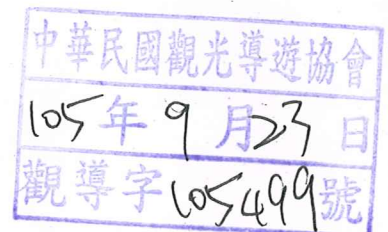 中華民國觀光導遊協會
105年9月23日
觀導字105499號